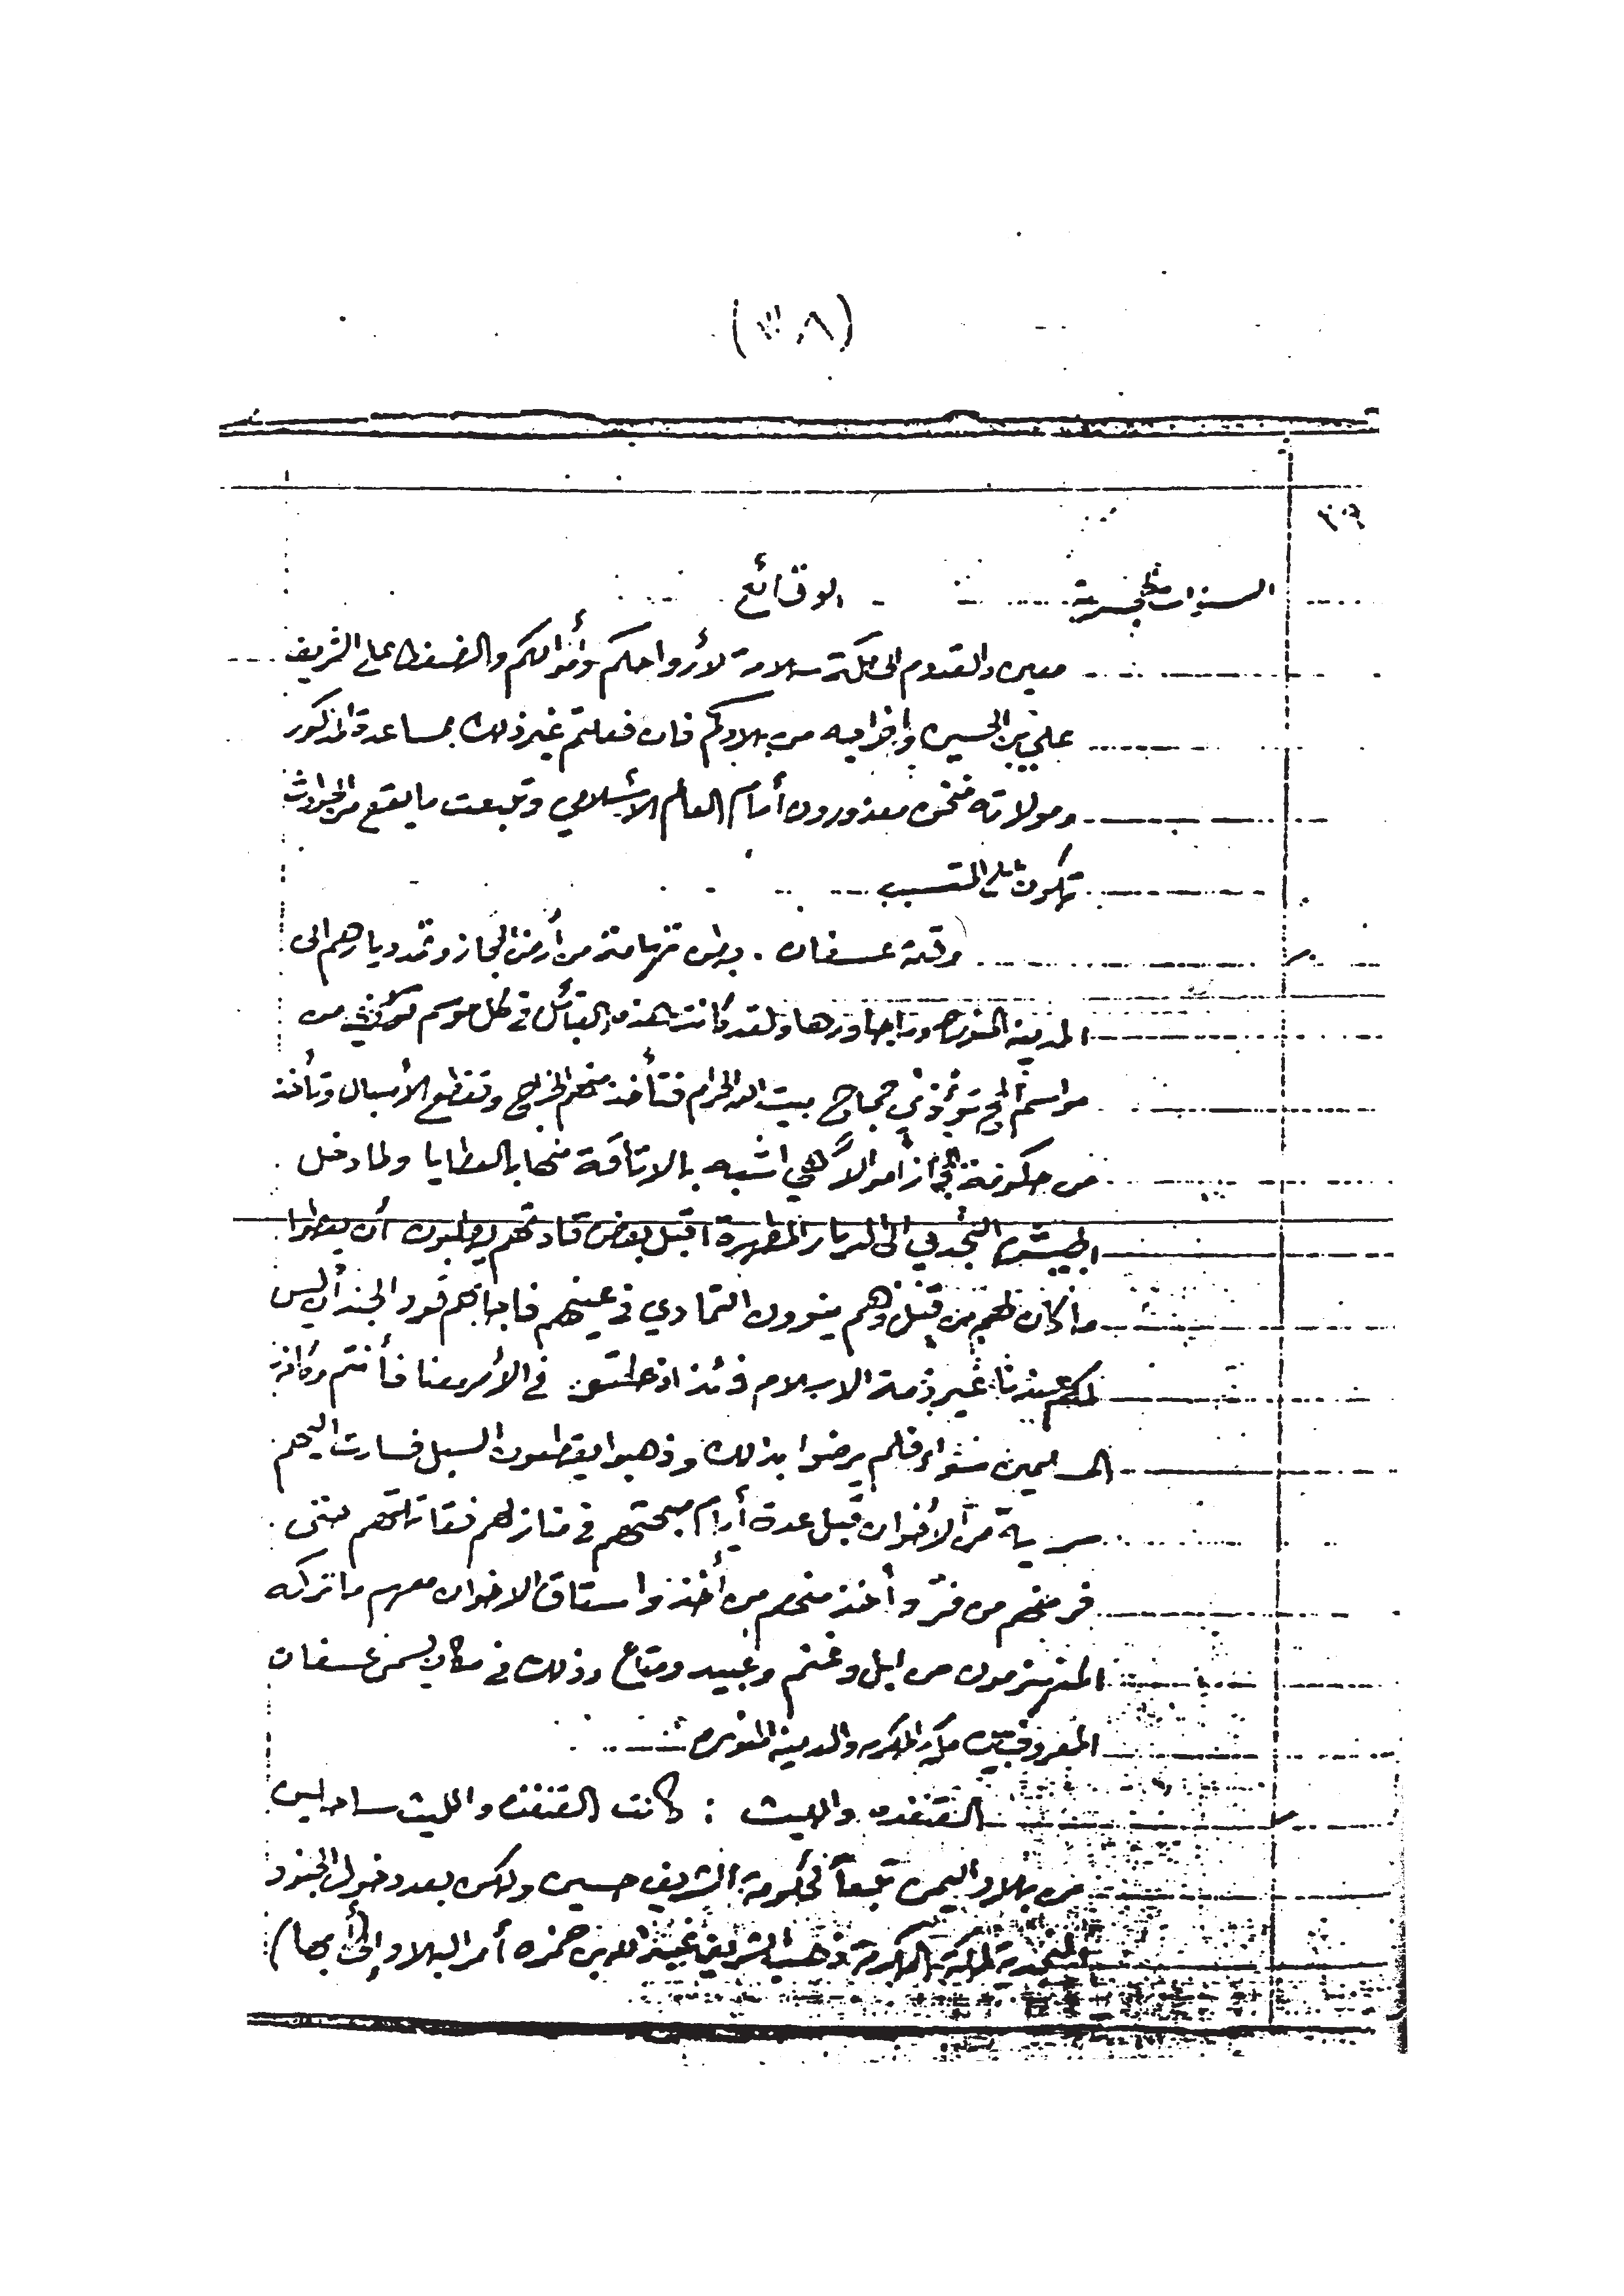 السنوات الهجرية الوقائع
معين والقدوم الى مكة سلامة لأرواحكم وأموالكم والضغط على الشريف
علي بن الحسين واخراجه من بلادكم فان فعلتم غير ذلك بمساعدة المذكور
وموالاته فنحن معذورون أمام العالم الاسلامي وتبعت ما يقع من الحوادث
تكون على المتسبب
وقعة عسفان . بطن تهامة من أرض الحجاز وتمد ديارهم الى
المدينة المنوره وما جاورها ولقد كانت هذه القبائل في كل موسم من
مواسم الحج تؤذي حجاج بيت الله الحرام فتأخذ منهم الخراج وتقطع الأسبال وتأخذ
من حكومة الحجاز أموالاً هي اشبه بالاتاوة منها بالعطايا ولما دخل
الجيش النجدي الى الديار المطهرة اقبل بعض قادتهم يطلبون أن يعطوا
ما كان لهم من قبل وهم ينوون التمادي في غيهم فاجابهم قود الجند أن ليس
لكم عندنا غير ذمة الاسلام في الأمر معنا فأنتم وكافة
المسلمين سواء فلم يرضوا بذلك وذهبوا يقطعون السبل فسارت اليهم
سرية من الأخوان قبل عدة أيام صبحتهم في منازلهم فقاتلتهم حتى
فر منهم من فرّ وأخذ منهم من أخذ واستاق الاخوان معهم ما تركه
المنهزمون من ابل وغنم وعبيد ومتاع وذلك في مكان يسمى عسفان
المعروف بين مكة المكرمه والمدينة المنوره
القنفده والليث : كانت القنفذه والليث ساحلين
من بلاد اليمن تبعاً لحكومة الشريف حسين ولكن بعد دخول الجنود
النجدية لمكة المكرمة ذهب الشريف عبد الله بن حمزه أمر البلاد إلى أبها)